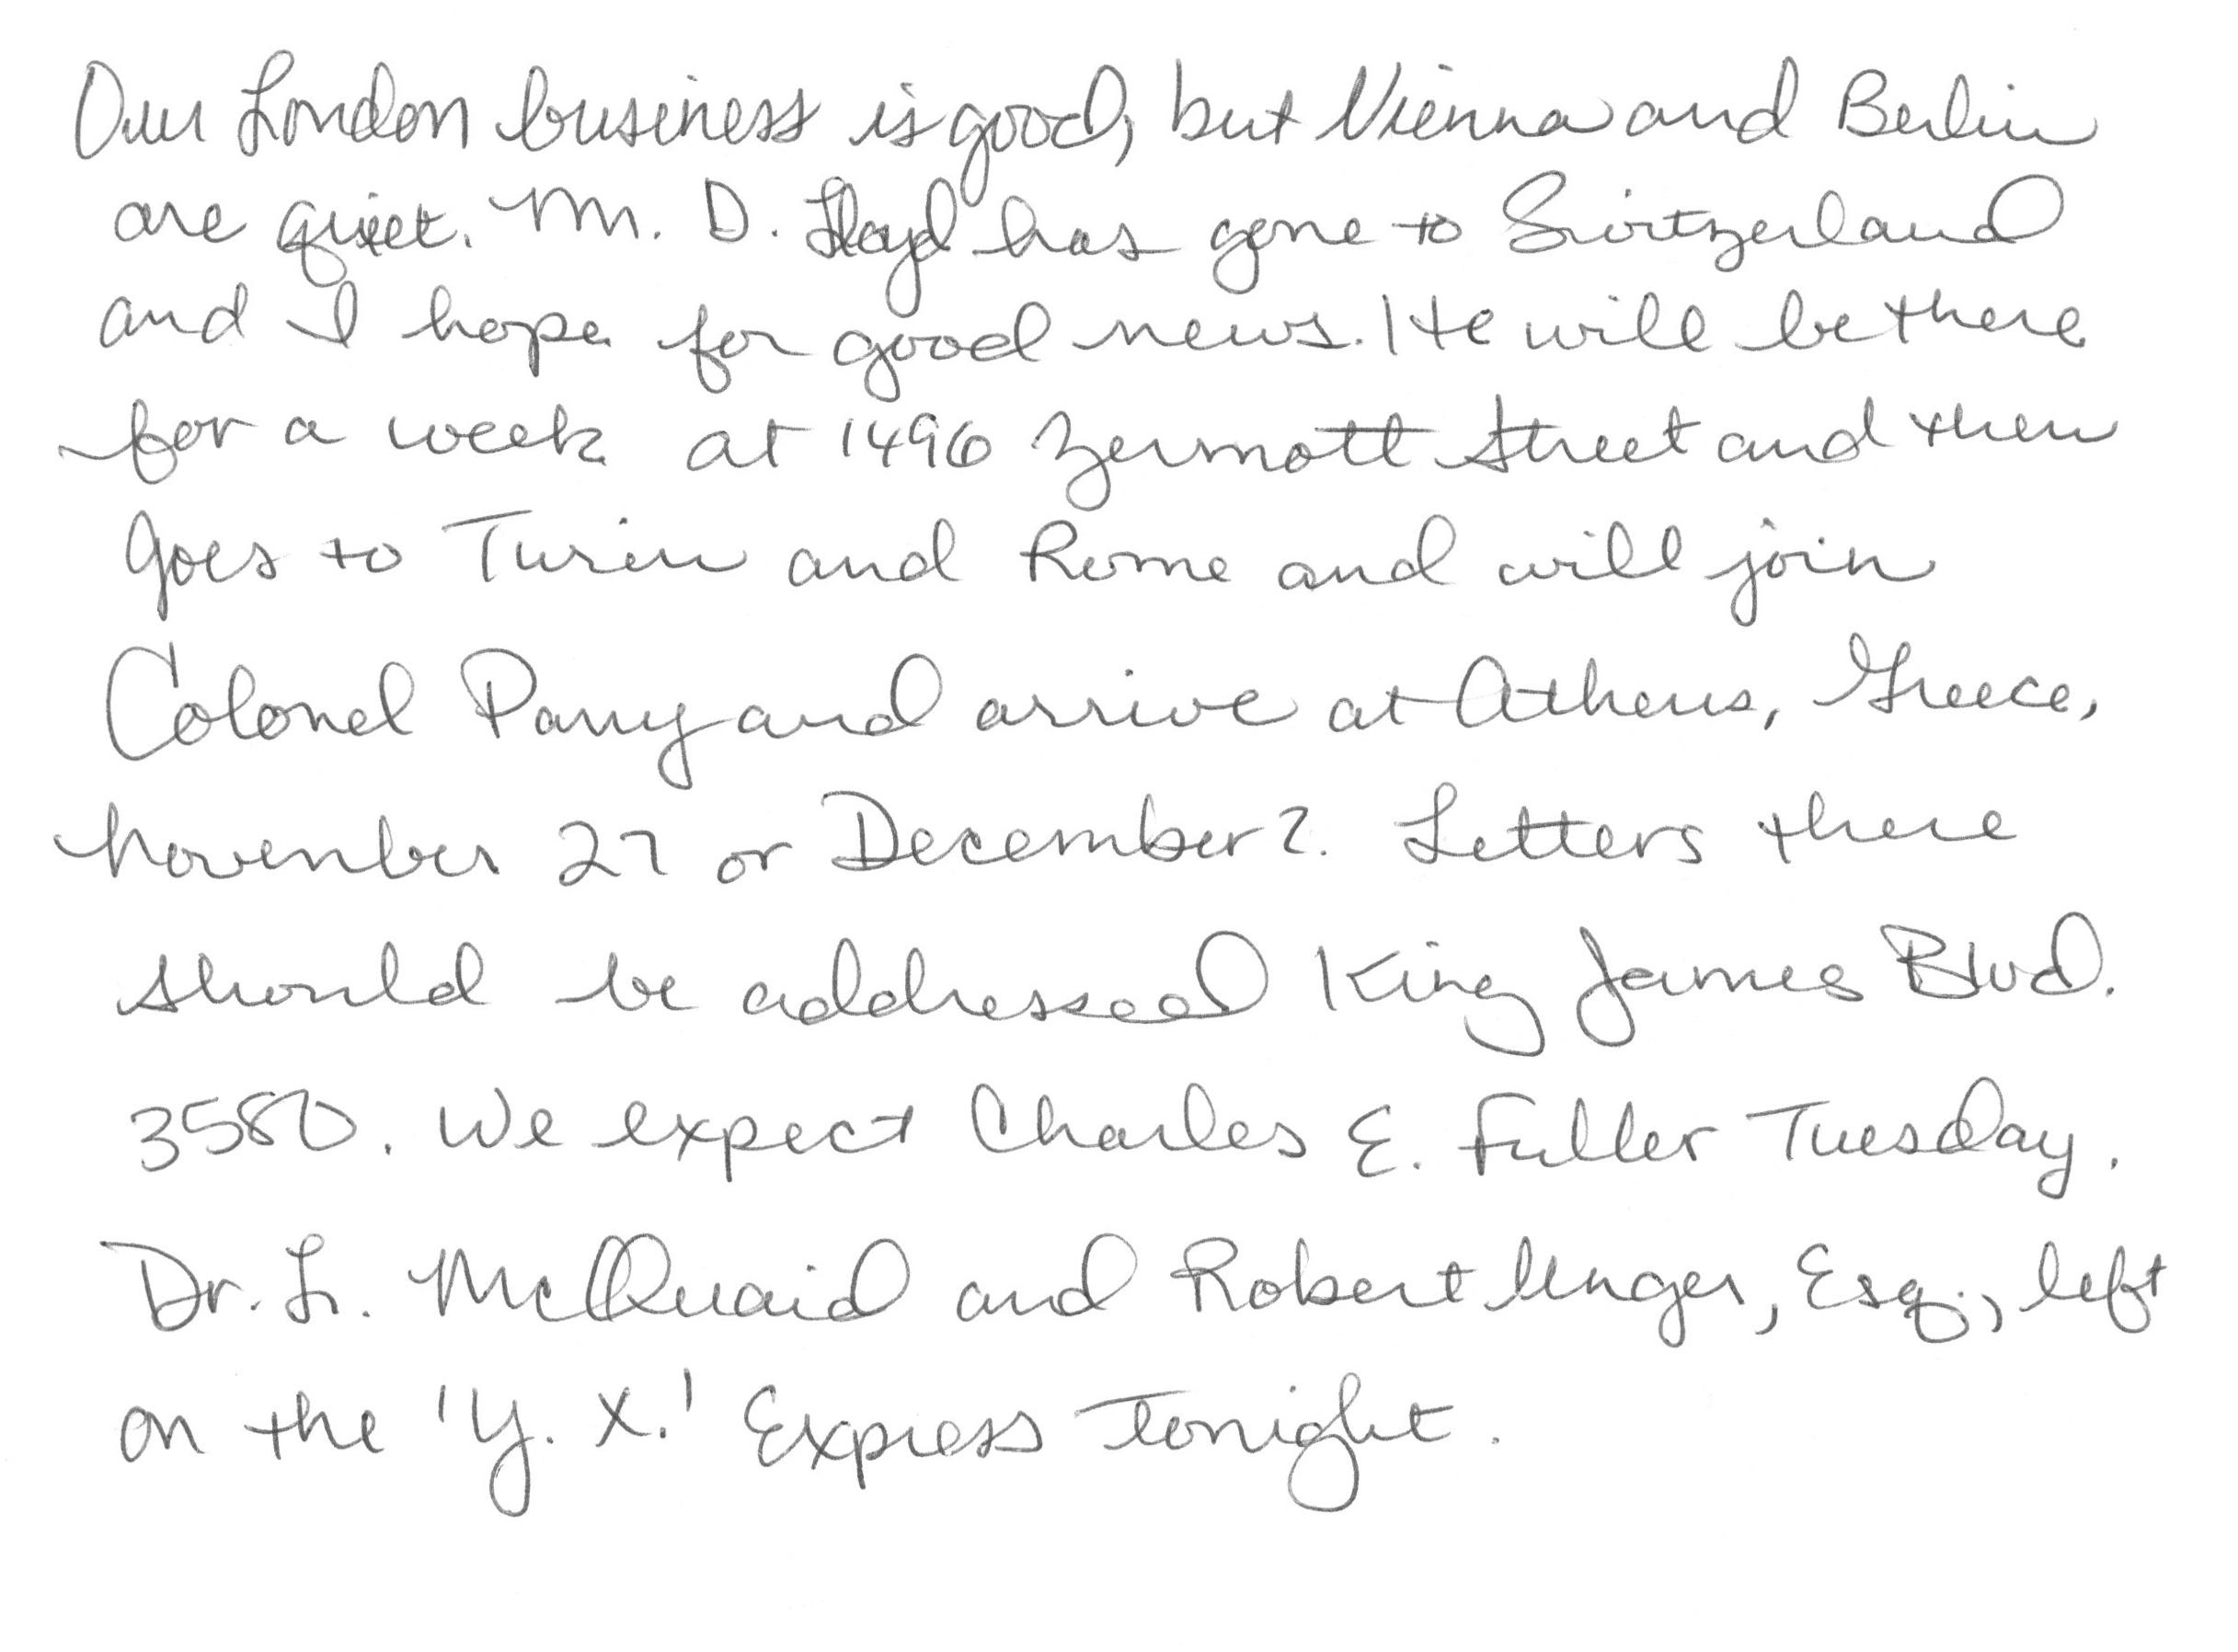 Our London business is good, but Vienna and Berlin
are quiet. M. D. Lloyd has gone to Switzerland
and I hope for good news. He will be there
for a week at 1496 Zermott Street and then
goes to Turin and Rome and will join
Colonel Parry and arrive at Athens, Greece,
November 27 or December 2. Letters there
should be addressed King James Blvd.
3580. We expect Charles E. Fuller Tuesday.
Dr. L. McQuaid and Robert Unger, Esq., left
on the 'Y. X.' Express tonight.